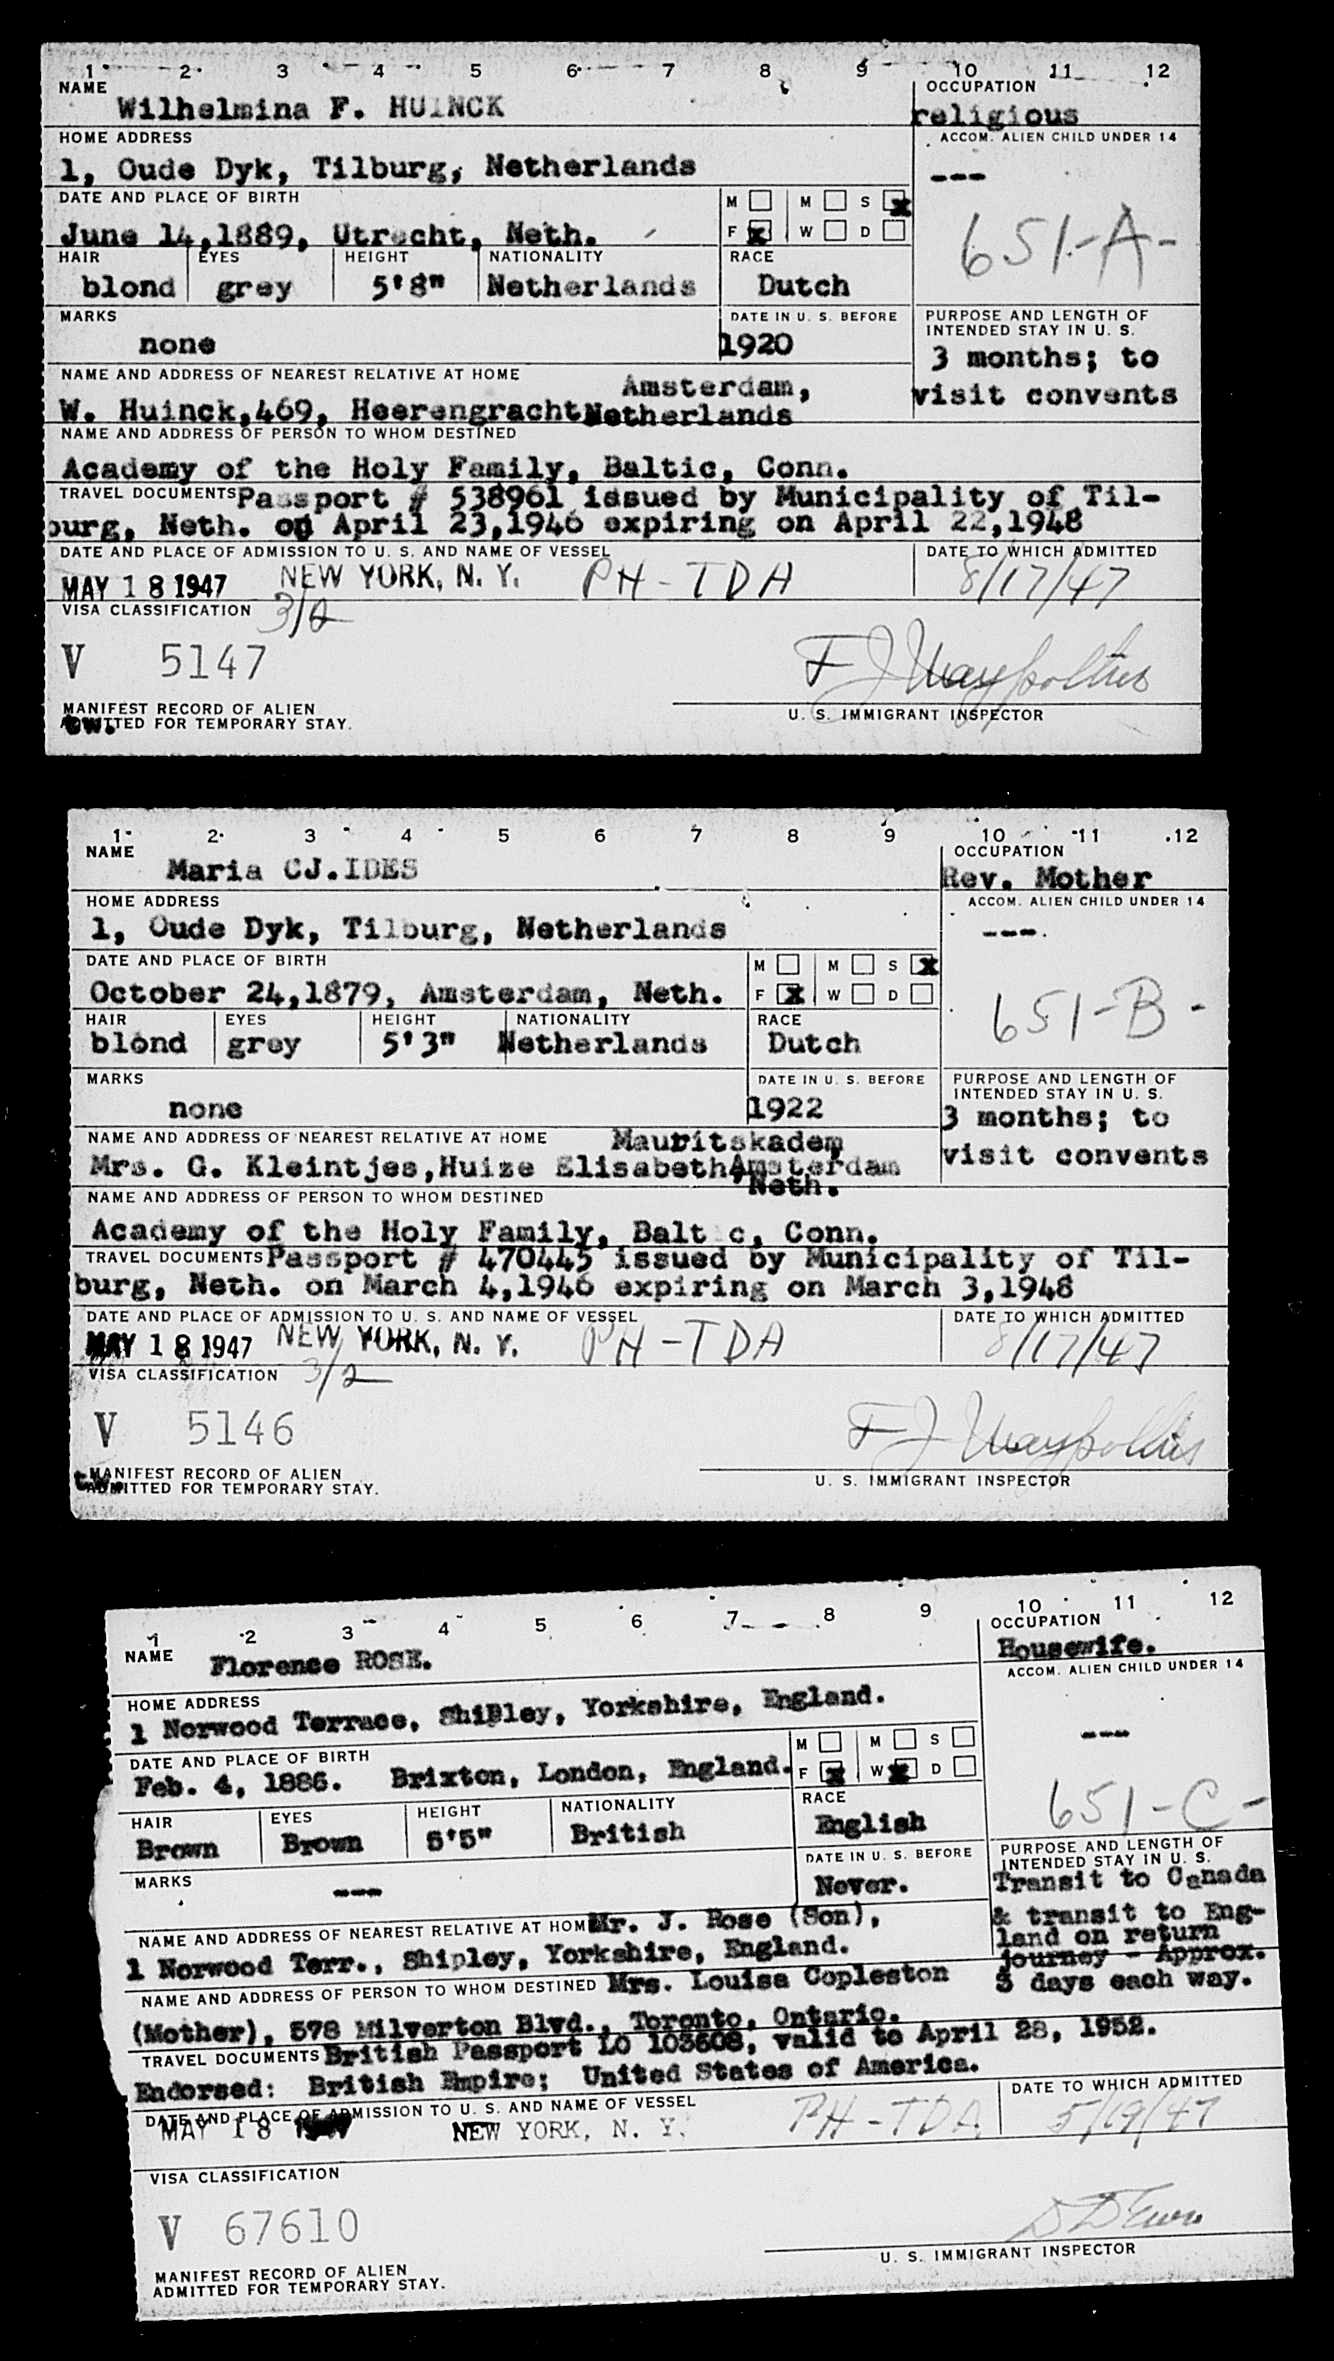 1 2 3 4 5 6 7 8 9 10 11 12
NAME OCCUPATION
Wilhelmina F. HUINCK religious
HOME ADDRESS ACCOM. ALIEN CHILD UNDER 14
1, Oude Dyk, Tilburg, Netherlands ---
DATE AND PLACE OF BIRTH M M S x
June 14,1889, Utrecht, Neth. F x W D 651-A-
HAIR EYES HEIGHT NATIONALITY RACE
blond grey 5'8" Netherlands Dutch
MARKS DATE IN U. S. BEFORE PURPOSE AND LENGTH OF INTENDED STAY IN U. S.
none 1920 3 months; to
NAME AND ADDRESS OF NEAREST RELATIVE AT HOME Amsterdam, visit convents
W. Huinck,469, Heerengracht Netherlands
NAME AND ADDRESS OF PERSON TO WHOM DESTINED
Academy of the Holy Family, Baltic, Conn.
TRAVEL DOCUMENTS Passport # 538961 issued by Municipality of Til-
burg, Neth. on April 23,1946 expiring on April 22,1948
DATE AND PLACE OF ADMISSION TO U. S. AND NAME OF VESSEL DATE TO WHICH ADMITTED
MAY 18 1947 NEW YORK, N. Y. PH-TDA 8/17/47
VISA CLASSIFICATION 3/2
V 5147
MANIFEST RECORD OF ALIEN
ADMITTED FOR TEMPORARY STAY. U. S. IMMIGRANT INSPECTOR
tw.
1 2 3 4 5 6 7 8 9 10 11 12
NAME OCCUPATION
Maria CJ.IDES Rev. Mother
HOME ADDRESS ACCOM. ALIEN CHILD UNDER 14
1, Oude Dyk, Tilburg, Netherlands ---.
DATE AND PLACE OF BIRTH M M S x
October 24,1879, Amsterdam, Neth. F x W D 651-B-
HAIR EYES HEIGHT NATIONALITY RACE
blond grey 5'3" Netherlands Dutch
MARKS DATE IN U. S. BEFORE PURPOSE AND LENGTH OF INTENDED STAY IN U. S.
none 1922 3 months; to
NAME AND ADDRESS OF NEAREST RELATIVE AT HOME Mauritskadem visit convents
Mrs. G. Kleintjes,Huize Elisabeth, Amsterdam
Neth.
NAME AND ADDRESS OF PERSON TO WHOM DESTINED
Academy of the Holy Family, Balt c, Conn.
TRAVEL DOCUMENTS Passport # 470445 issued by Municipality of Til-
burg, Neth. on March 4,1946 expiring on March 3,1948
DATE AND PLACE OF ADMISSION TO U. S. AND NAME OF VESSEL DATE TO WHICH ADMITTED
MAY 18 1947 NEW YORK, N. Y. PH-TDA 8/17/47
VISA CLASSIFICATION 3/2
V 5146
MANIFEST RECORD OF ALIEN
ADMITTED FOR TEMPORARY STAY. U. S. IMMIGRANT INSPECTOR
t.w.
1 2 3 4 5 6 7 8 9 10 11 12
NAME OCCUPATION
Florence ROSE. Housewife.
HOME ADDRESS ACCOM. ALIEN CHILD UNDER 14
1 Norwood Terrace, Shipley, Yorkshire, England. ---
DATE AND PLACE OF BIRTH M M S
Feb. 4, 1886. Brixton, London, England. F x W x D 651-C-
HAIR EYES HEIGHT NATIONALITY RACE
Brown Brown 5'5" British English
MARKS DATE IN U. S. BEFORE PURPOSE AND LENGTH OF INTENDED STAY IN U. S.
--- Never. Transit to Canada
& transit to Eng-
land on return
journey - Approx.
3 days each way.
NAME AND ADDRESS OF NEAREST RELATIVE AT HOME Mr. J. Rose (Son),
1 Norwood Terr., Shipley, Yorkshire, England.
NAME AND ADDRESS OF PERSON TO WHOM DESTINED Mrs. Louisa Copleston
(Mother), 578 Milverton Blvd., Toronto, Ontario.
TRAVEL DOCUMENTS British Passport LO 103608, valid to April 28, 1952.
Endorsed: British Empire; United States of America.
DATE AND PLACE OF ADMISSION TO U. S. AND NAME OF VESSEL DATE TO WHICH ADMITTED
MAY 18 NEW YORK, N. Y. PH-TDA 5/19/47
VISA CLASSIFICATION
V 67610
MANIFEST RECORD OF ALIEN
ADMITTED FOR TEMPORARY STAY. U. S. IMMIGRANT INSPECTOR